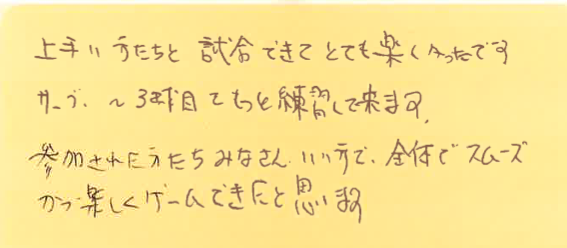 上手い方たちと 試合できて とても楽しかったです
サーブ、〜3球目でもっと練習して来ます。
参加された方たちみなさん、いい方で、全体でスムーズ
かつ楽しくゲームできたと思います